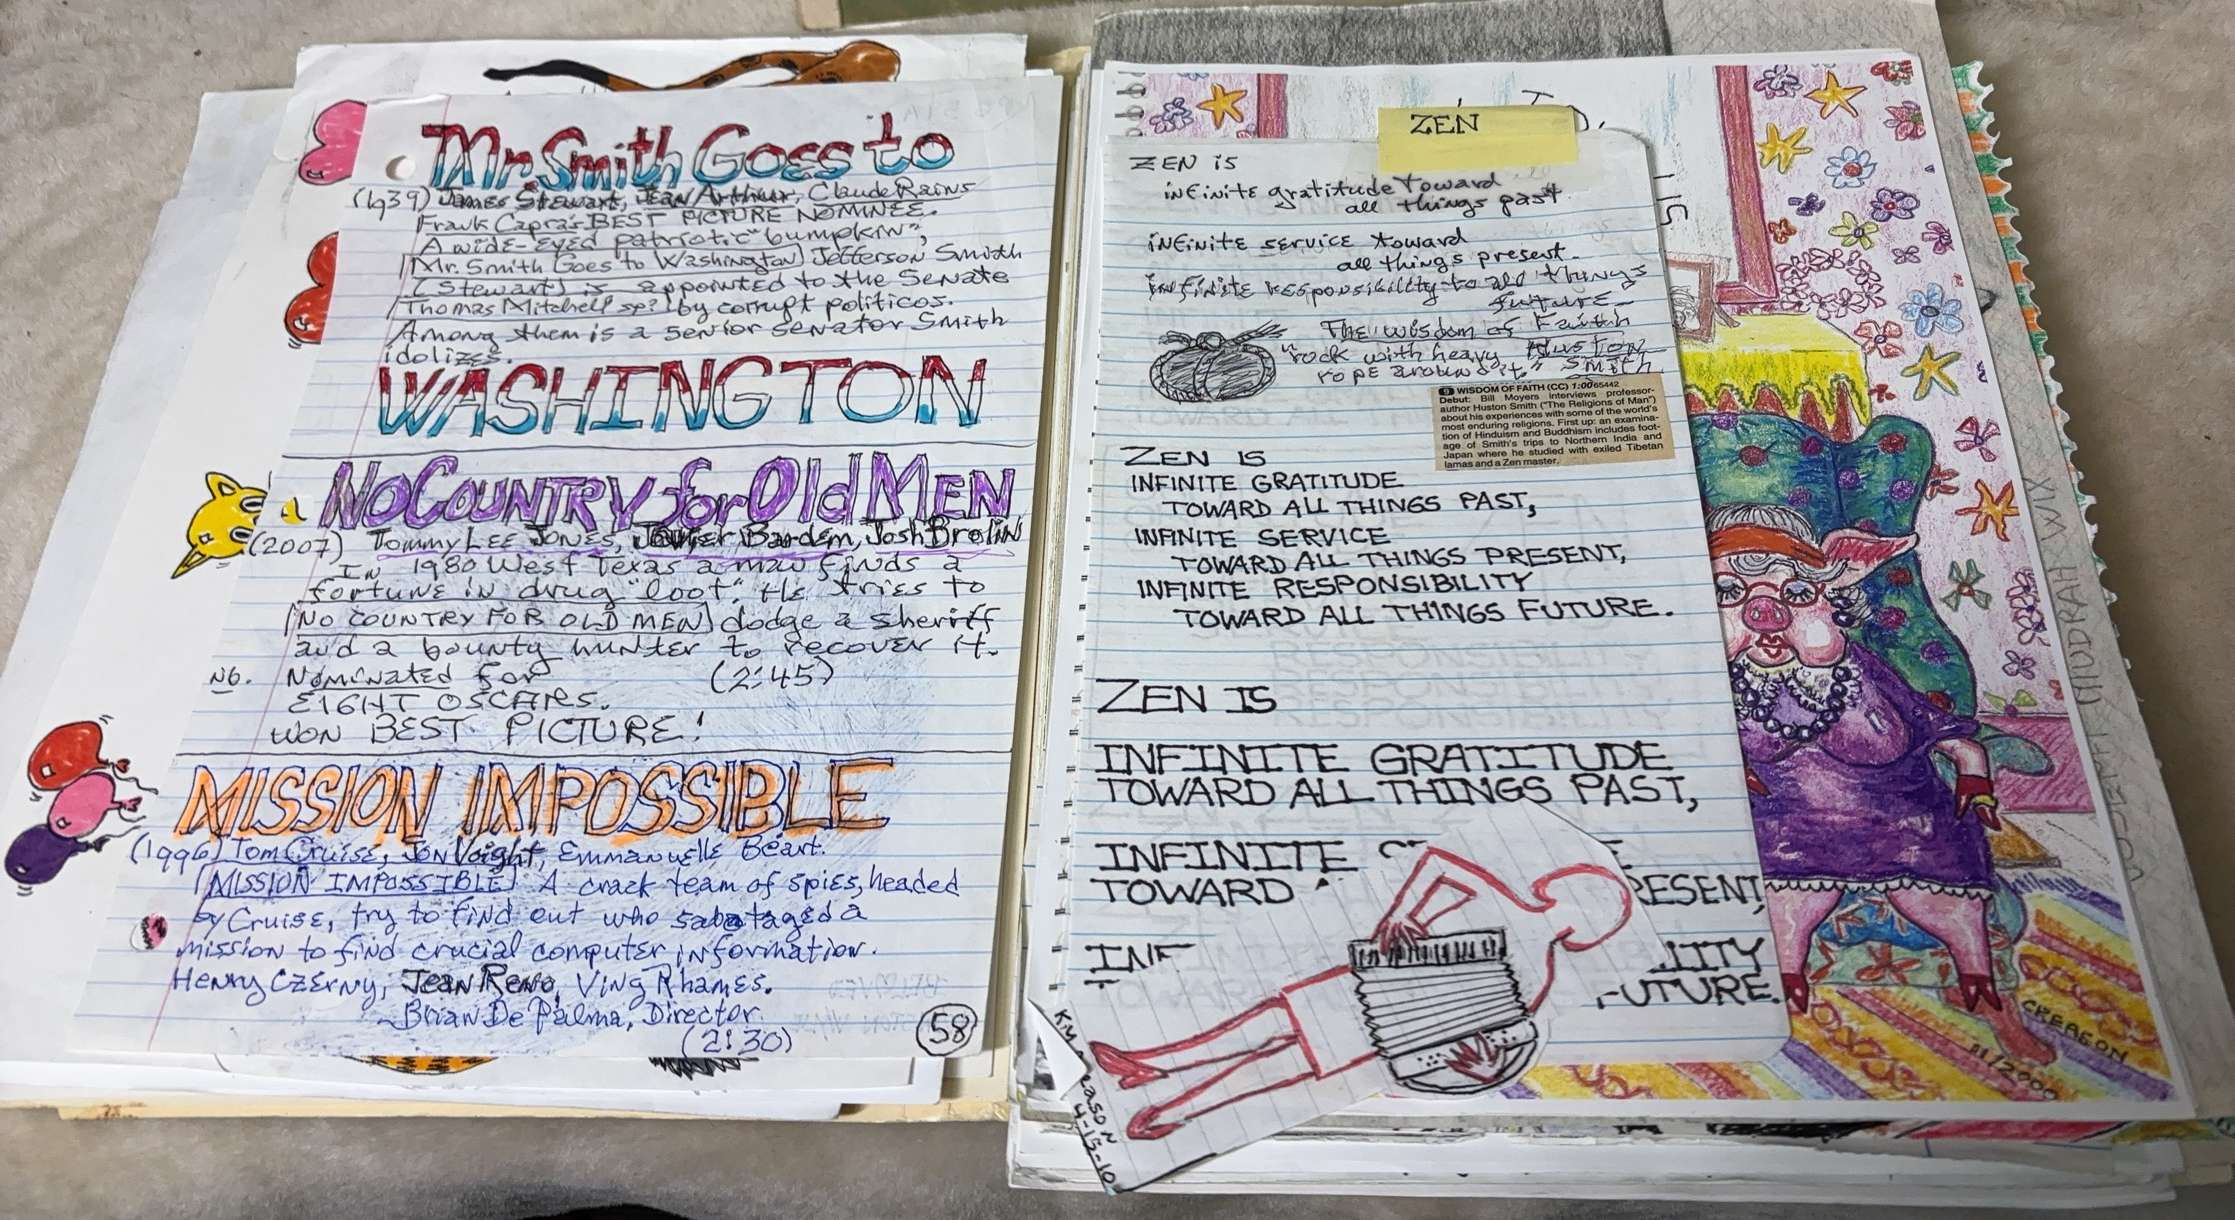 Mr. Smith Goes to
(1939) James Stewart, Jean Arthur, Claude Rains
Frank Capra's BEST PICTURE NOMINEE.
A wide-eyed patriotic "bumpkin",
[Mr. Smith Goes to Washington] Jefferson Smith
(Stewart) is appointed to the Senate
[Thomas Mitchell sp?] by corrupt politicos.
Among them is a senior senator Smith
idolizes.
WASHINGTON
No Country for Old Men
(2007) Tommy Lee Jones, Javier Bardem, Josh Brolin
In 1980 West Texas a man finds a
fortune in drug "loot". He tries to
[NO COUNTRY FOR OLD MEN] dodge a sheriff
and a bounty hunter to recover it.
NB. Nominated for (2:45)
EIGHT OSCARS.
WON BEST PICTURE!
MISSION IMPOSSIBLE
(1996) Tom Cruise, Jon Voight, Emmanuelle Béart.
[MISSION IMPOSSIBLE] A crack team of spies, headed
by Cruise, try to find out who sabotaged a
mission to find crucial computer information.
Henry Czerny, Jean Reno, Ving Rhames.
~Brian De Palma, Director.
(2:30)
58
ZEN
ZEN is
infinite gratitude toward
all things past.
infinite service toward
all things present.
infinite responsibility to all things
future—
The wisdom of Faith
"rock with heavy Huston
rope around it." Smith
9 WISDOM OF FAITH (CC) 1:00 65442
Debut: Bill Moyers interviews professor-
author Huston Smith ("The Religions of Man")
about his experiences with some of the world's
most enduring religions. First up: an examina-
tion of Hinduism and Buddhism includes foot-
age of Smith's trips to Northern India and
Japan where he studied with exiled Tibetan
lamas and a Zen master.
ZEN IS
INFINITE GRATITUDE
TOWARD ALL THINGS PAST,
INFINITE SERVICE
TOWARD ALL THINGS PRESENT,
INFINITE RESPONSIBILITY
TOWARD ALL THINGS FUTURE.
ZEN IS
INFINITE GRATITUDE
TOWARD ALL THINGS PAST,
INFINITE
TOWARD RESENT,
INF LITY
FUTURE.
4-15-10
CREAGON
11/2000